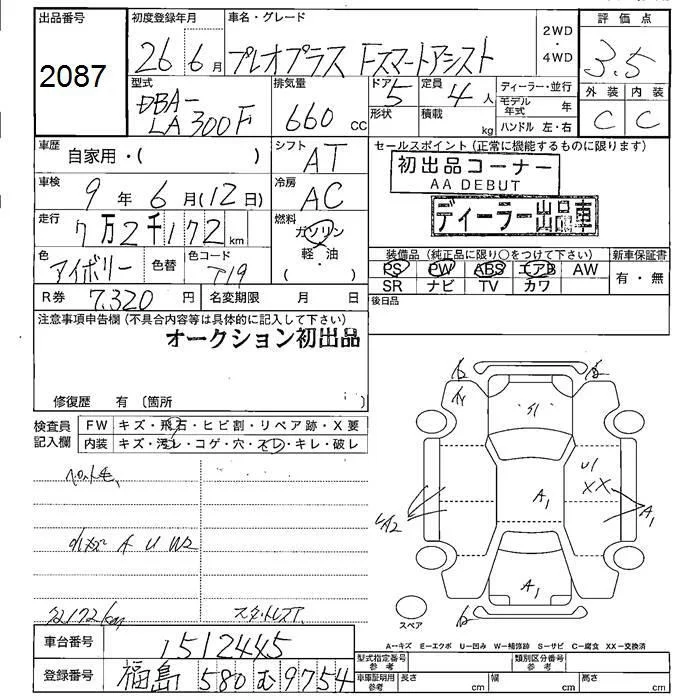 出品番号
2087
初度登録年月
26年6月
車名・グレード
プレオプラス Fスマートアシスト
2WD
・
4WD
評価点
3.5
外装 内装
C C
型式
DBA-
LA300F
排気量
660 CC
ドア 5
形状
定員 4人
積載 kg
ディーラー・並行
モデル年式 年
ハンドル 左・右
車歴
自家用・( )
シフト
AT
セールスポイント(正常に機能するものに限ります)
初出品コーナー
AA DEBUT
ディーラー出品車
車検
9年6月(12日)
冷房
AC
走行
7万2千172km
燃料
ガソリン
・
軽・油
( )
色
アイボリー
色替
色コード
T19
装備品(純正品に限り○をつけて下さい)
PS PW ABS エアB AW
SR ナビ TV カワ
新車保証書
有・無
R券 7,320円
名変期限 月 日
後日品
注意事項申告欄(不具合内容等は具体的に記入して下さい)
オークション初出品
修復歴 有(箇所 )
検査員
記入欄
FW キズ・飛石・ヒビ割・リペア跡・X要
内装 キズ・汚レ・コゲ・穴・スレ・キレ・破レ
ペット毛
A U W2
72172km
スタットレスT.
S1
U1
XX
A1
A1
A2
A1
スペア
A−キズ E−エクボ U−凹み W−補修跡 S−サビ C−腐食 XX−交換済
車台番号
1512445
登録番号
福島 580 む 9754
型式指定番号
参考
類別区分番号
参考
車庫証明用
参考
長さ cm
幅 cm
高さ cm